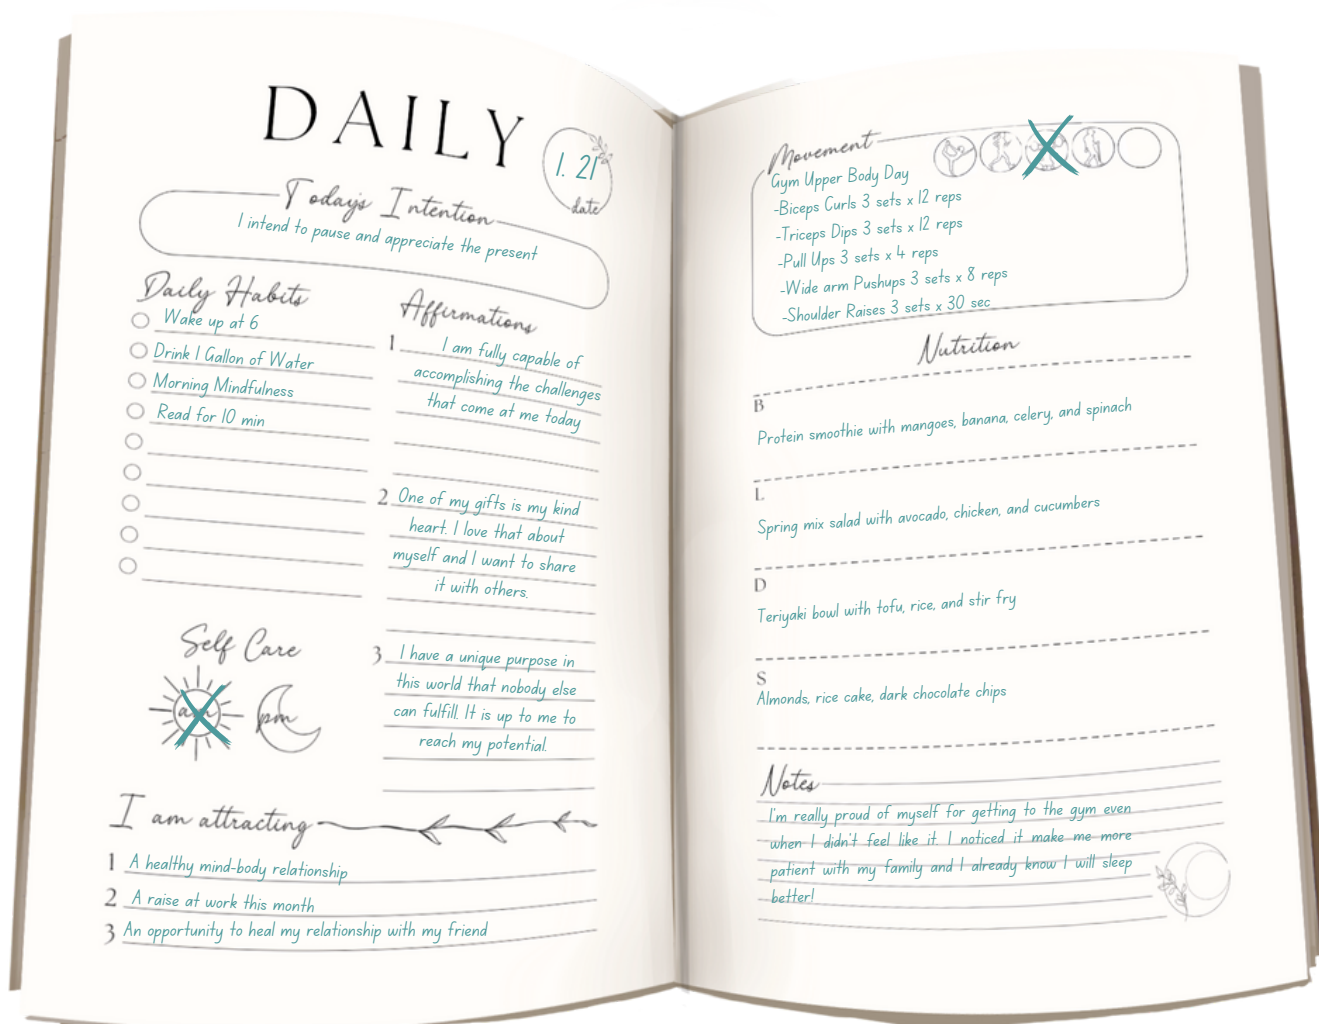 DAILY
1. 21
date
Today's Intention
I intend to pause and appreciate the present
Daily Habits
Wake up at 6
Drink 1 Gallon of Water
Morning Mindfulness
Read for 10 min
Affirmations
1 I am fully capable of
accomplishing the challenges
that come at me today
2 One of my gifts is my kind
heart. I love that about
myself and I want to share
it with others.
3 I have a unique purpose in
this world that nobody else
can fulfill. It is up to me to
reach my potential.
Self Care
am
pm
I am attracting
1 A healthy mind-body relationship
2 A raise at work this month
3 An opportunity to heal my relationship with my friend
Movement
Gym Upper Body Day
-Biceps Curls 3 sets x 12 reps
-Triceps Dips 3 sets x 12 reps
-Pull Ups 3 sets x 4 reps
-Wide arm Pushups 3 sets x 8 reps
-Shoulder Raises 3 sets x 30 sec
Nutrition
B
Protein smoothie with mangoes, banana, celery, and spinach
L
Spring mix salad with avocado, chicken, and cucumbers
D
Teriyaki bowl with tofu, rice, and stir fry
S
Almonds, rice cake, dark chocolate chips
Notes
I'm really proud of myself for getting to the gym even
when I didn't feel like it. I noticed it make me more
patient with my family and I already know I will sleep
better!